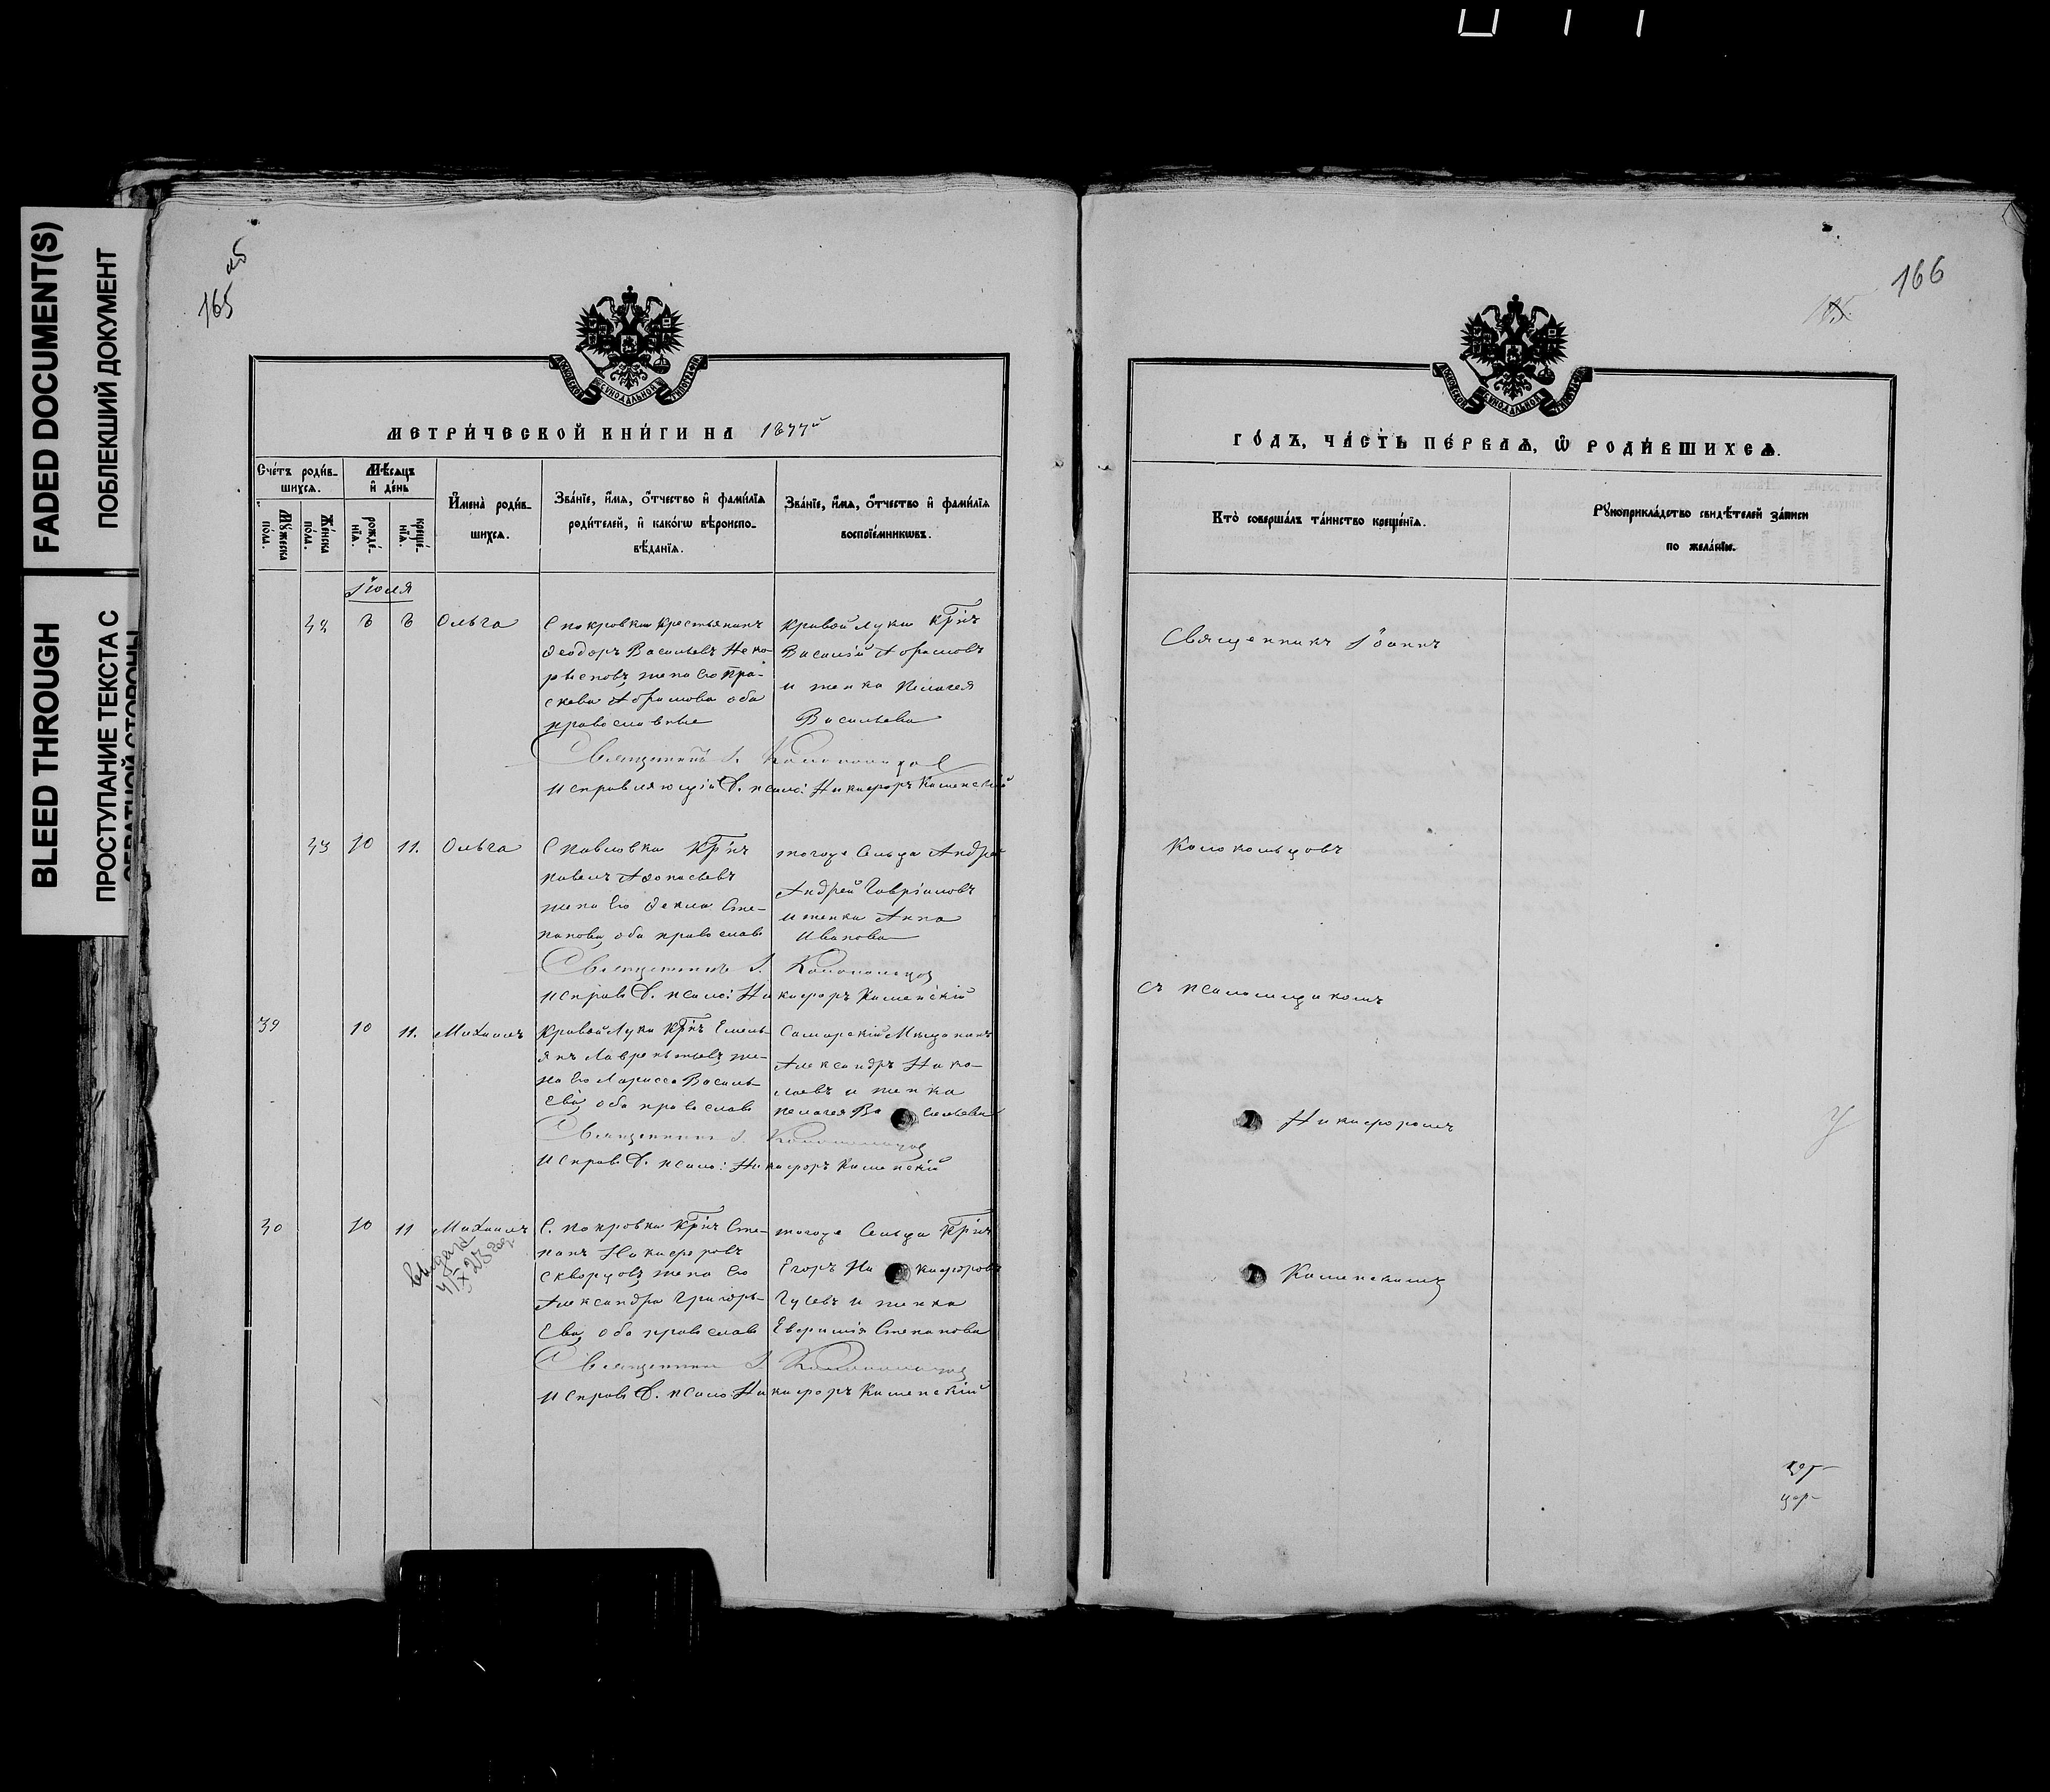 FADED DOCUMENT(S)
ПОБЛЕКШИЙ ДОКУМЕНТ
BLEED THROUGH
ПРОСТУПАНИЕ ТЕКСТА С
ОБРАТНОЙ СТОРОНЫ
165
об
166
МОСКОВСКОЙ СѴНОДАЛЬНОЙ ТИПОГРАФІИ
МЕТРИ́ЧЕСКОЙ КНИ́ГИ НА 1877й
Счéтъ роди́в-
шихся.
Мѣ́сяцъ
и҆ де́нь
Му́жеска
по́ла.
Же́нска
по́ла.
рожде́-
нія.
креще́-
нія.
И҆мена̀ роди́в-
шихся.
Зва́ніе, и҆́мя, ѻ҆́тчество и҆ фами́лія
роди́телей, и҆ како́гѡ вѣроиспо-
вѣ́данія.
Зва́ніе, и҆́мя, ѻ҆́тчество и҆ фами́лія
воспріе́мникѡвъ.
Іюля
8 8 Ольга
С покровки крестьянинъ
Ѳеодоръ Васильевъ
жена Его Пра-
скева Абрамова оба
православные
Кривой луки Крнъ
Василій Абрамовъ
и женка Пелагея
Васильева
Священникъ І. Колокольцов
Исправляющій д. псало: Никифоръ Каменскій
10 11. Ольга
С Павловки Крнъ
павелъ Афонасьевъ
жена Его Фекла Сте-
панова, оба православ
тогоже Сельца Андрей
Андрей Гавріиловъ
и женка Анна
Иванова
Священникъ І. Колокольцов
Исправ д. псало: Никифоръ Каменскій
39 10 11. Михаилъ
Кривой Луки Крнъ Емель-
янъ Лаврентьевъ же-
на Его Ларисса Василь-
Ева, оба православ
Самарскій Мещанинъ
Александръ Нико-
лаевъ и женка
пелагея Васильева
Священникъ І. Колокольцов
Исправ д. псало: Никифоръ Каменскій
10 11 Михаилъ
С. покровки Крнъ Сте-
панъ Никифоровъ
Скворцовъ жена Его
Александра Григорь-
Ева, оба православ
тогоже Сельца Крнъ
Егоръ Никифоровъ
Гусевъ и женка
Евфимія Степанова
Священникъ І. Колокольцов
Исправ д. псало: Никифоръ Каменскій
МОСКОВСКОЙ СѴНОДАЛЬНОЙ ТИПОГРАФІИ
ГО́ДЪ, ЧА́СТЬ ПЕ́РВАЯ, Ѽ РОДИ́ВШИХСЯ.
Кто̀ соверша́лъ та́инство креще́нія.
Рꙋкоприкла́дство свидѣ́телей за́писи
по жела́нію.
Священникъ Іоаннъ
Колокольцовъ
съ псаломщикомъ
Никифоромъ
Каменскимъ